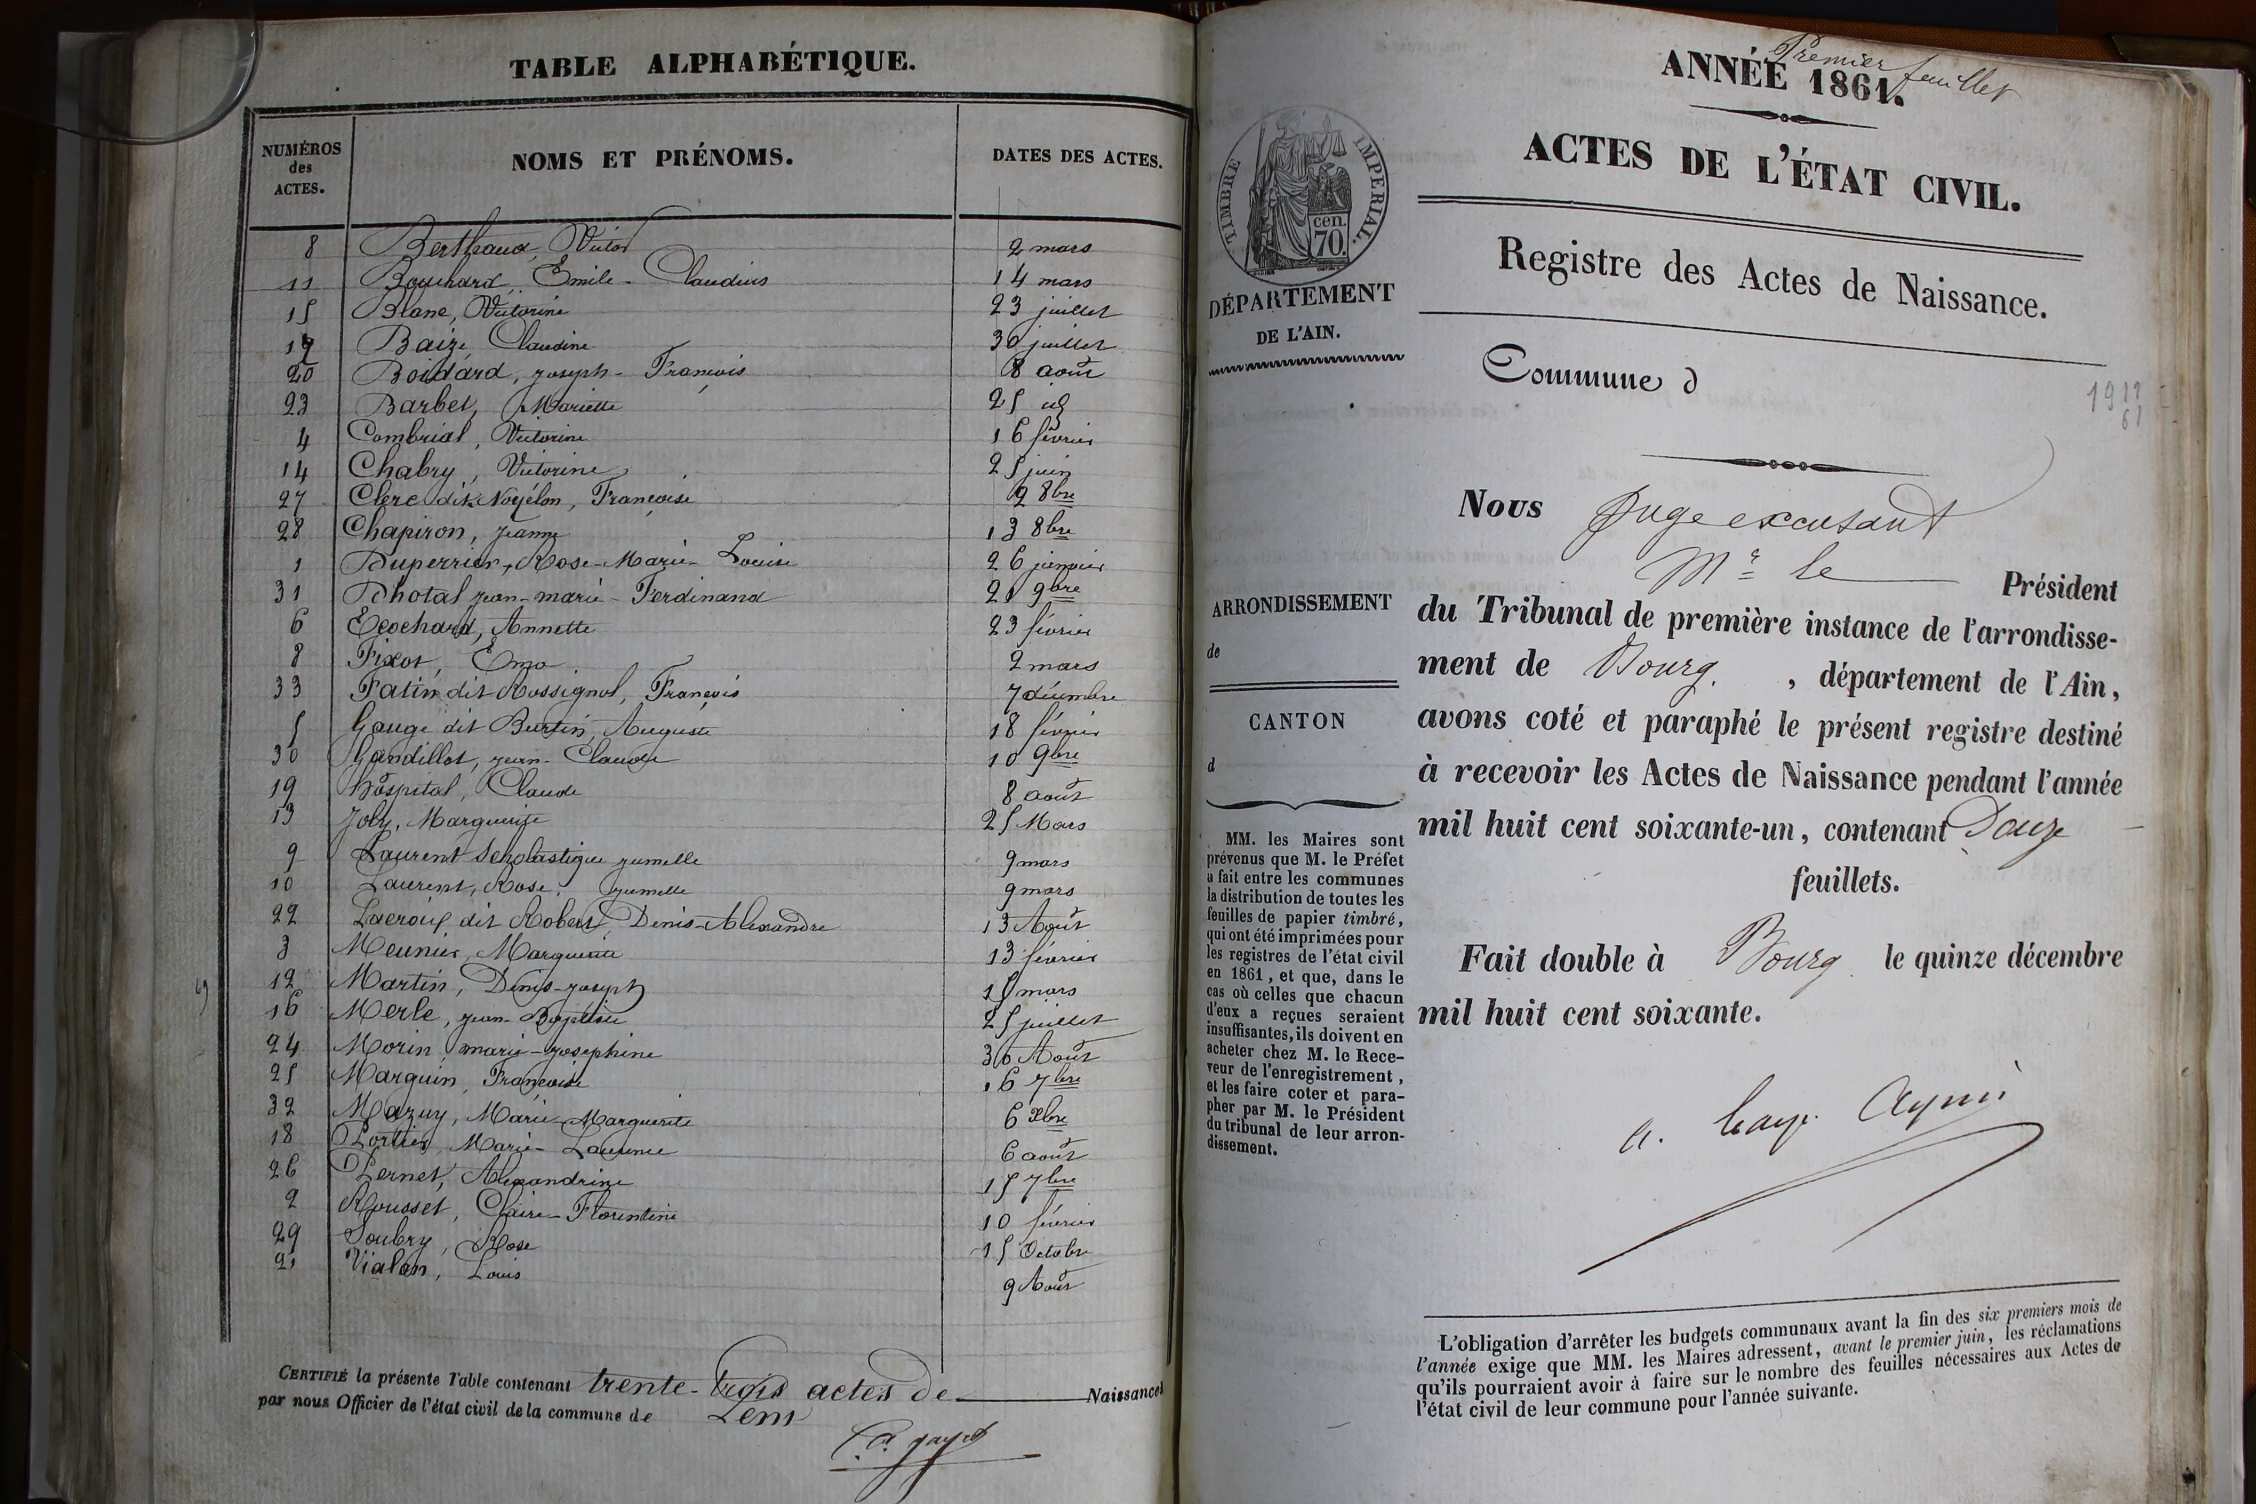 TABLE ALPHABÉTIQUE.
NUMÉROS des ACTES.
NOMS ET PRÉNOMS.
DATES DES ACTES.
8 Berthaud, Victor 2 mars
11 Bouchard, Emile-Claudius 14 mars
15 Blanc, Victorine 23 juillet
Baize Claudine 30 juillet
20 Boidard, joseph-François 8 août
23 Barbet, Mariette 25
4 Combrial, Victorine 16 février
14 Chabry, Victorine 25 juin
27 Clerc dit Noyélon, Françoise 2 8bre
28 Chapiron, jeanne 13 8bre
1 Duperrier, Rose-Marie-Louise 26 janvier
31 Dhotal jean-marie-Ferdinand 21 9bre
6 Ecochard, Annette 23 février
8 Fixot, Ema 2 mars
33 Fatin dit Rossignol, François 7 décembre
5 Gouge dit Burtin, Auguste 18 février
30 Gandillot, jean-Claude 10 9bre
19 hôspital, Claude 8 août
13 Joly, Marguerite 25 Mars
9 Laurent Scholastique jumelle 9 mars
10 Laurent, Rose, jumelle 9 mars
22 Lacroix dit Robert, Denis-Alexandre 13 Août
3 Meunier, Marguerite 13 février
12 Martin, Denis-joseph 15 mars
16 Merle, jean-Baptiste 25 juillet
24 Morin marie-josephine 30 Août
25 Marguin, Françoise 16 7bre
32 Mazuy, Marie-Marguerite 6 xbre
18 Portier, Marie-Laurence 6 août
26 Pernet, Alexandrine 15 7bre
2 Rousset, Claire-Florentine 10 février
29 Soubry, Rose 15 Octobre
21 Vialon, Louis 9 Août
CERTIFIÉ la présente Table contenant trente-trois actes de Naissances
par nous Officier de l'état civil de la commune de Lent
Premier feuillet
ANNÉE 1861.
ACTES DE L'ÉTAT CIVIL.
Registre des Actes de Naissance.
TIMBRE IMPERIAL.
cen.
70.
DÉPARTEMENT
DE L'AIN.
Commune d
Nous juge excusant
Mr le Président
du Tribunal de première instance de l'arrondisse-
ment de Bourg, département de l'Ain,
avons coté et paraphé le présent registre destiné
à recevoir les Actes de Naissance pendant l'année
mil huit cent soixante-un, contenant Douze
feuillets.
Fait double à Bourg le quinze décembre
mil huit cent soixante.
ARRONDISSEMENT
de
CANTON
d
MM. les Maires sont
prévenus que M. le Préfet
a fait entre les communes
la distribution de toutes les
feuilles de papier timbré,
qui ont été imprimées pour
les registres de l'état civil
en 1861, et que, dans le
cas où celles que chacun
d'eux a reçues seraient
insuffisantes, ils doivent en
acheter chez M. le Rece-
veur de l'enregistrement,
et les faire coter et para-
pher par M. le Président
du tribunal de leur arron-
dissement.
L'obligation d'arrêter les budgets communaux avant la fin des six premiers mois de
l'année exige que MM. les Maires adressent, avant le premier juin, les réclamations
qu'ils pourraient avoir à faire sur le nombre des feuilles nécessaires aux Actes de
l'état civil de leur commune pour l'année suivante.